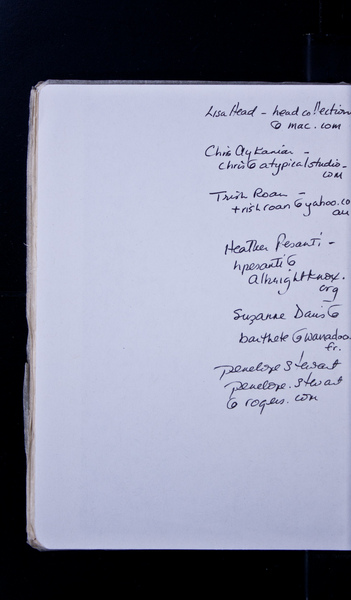 Lisa Head - headcollection
@ mac.com
Chris Aykanian -
chris@atypicalstudio.
com
Trish Roan -
trishroan@yahoo.co
au
Heather Pesanti -
hpesanti@
albrightknox.
org
Suzanne Davis @
barthete@wanadoo.
fr.
penelope stewart
penelope.stewart
@ rogers.com